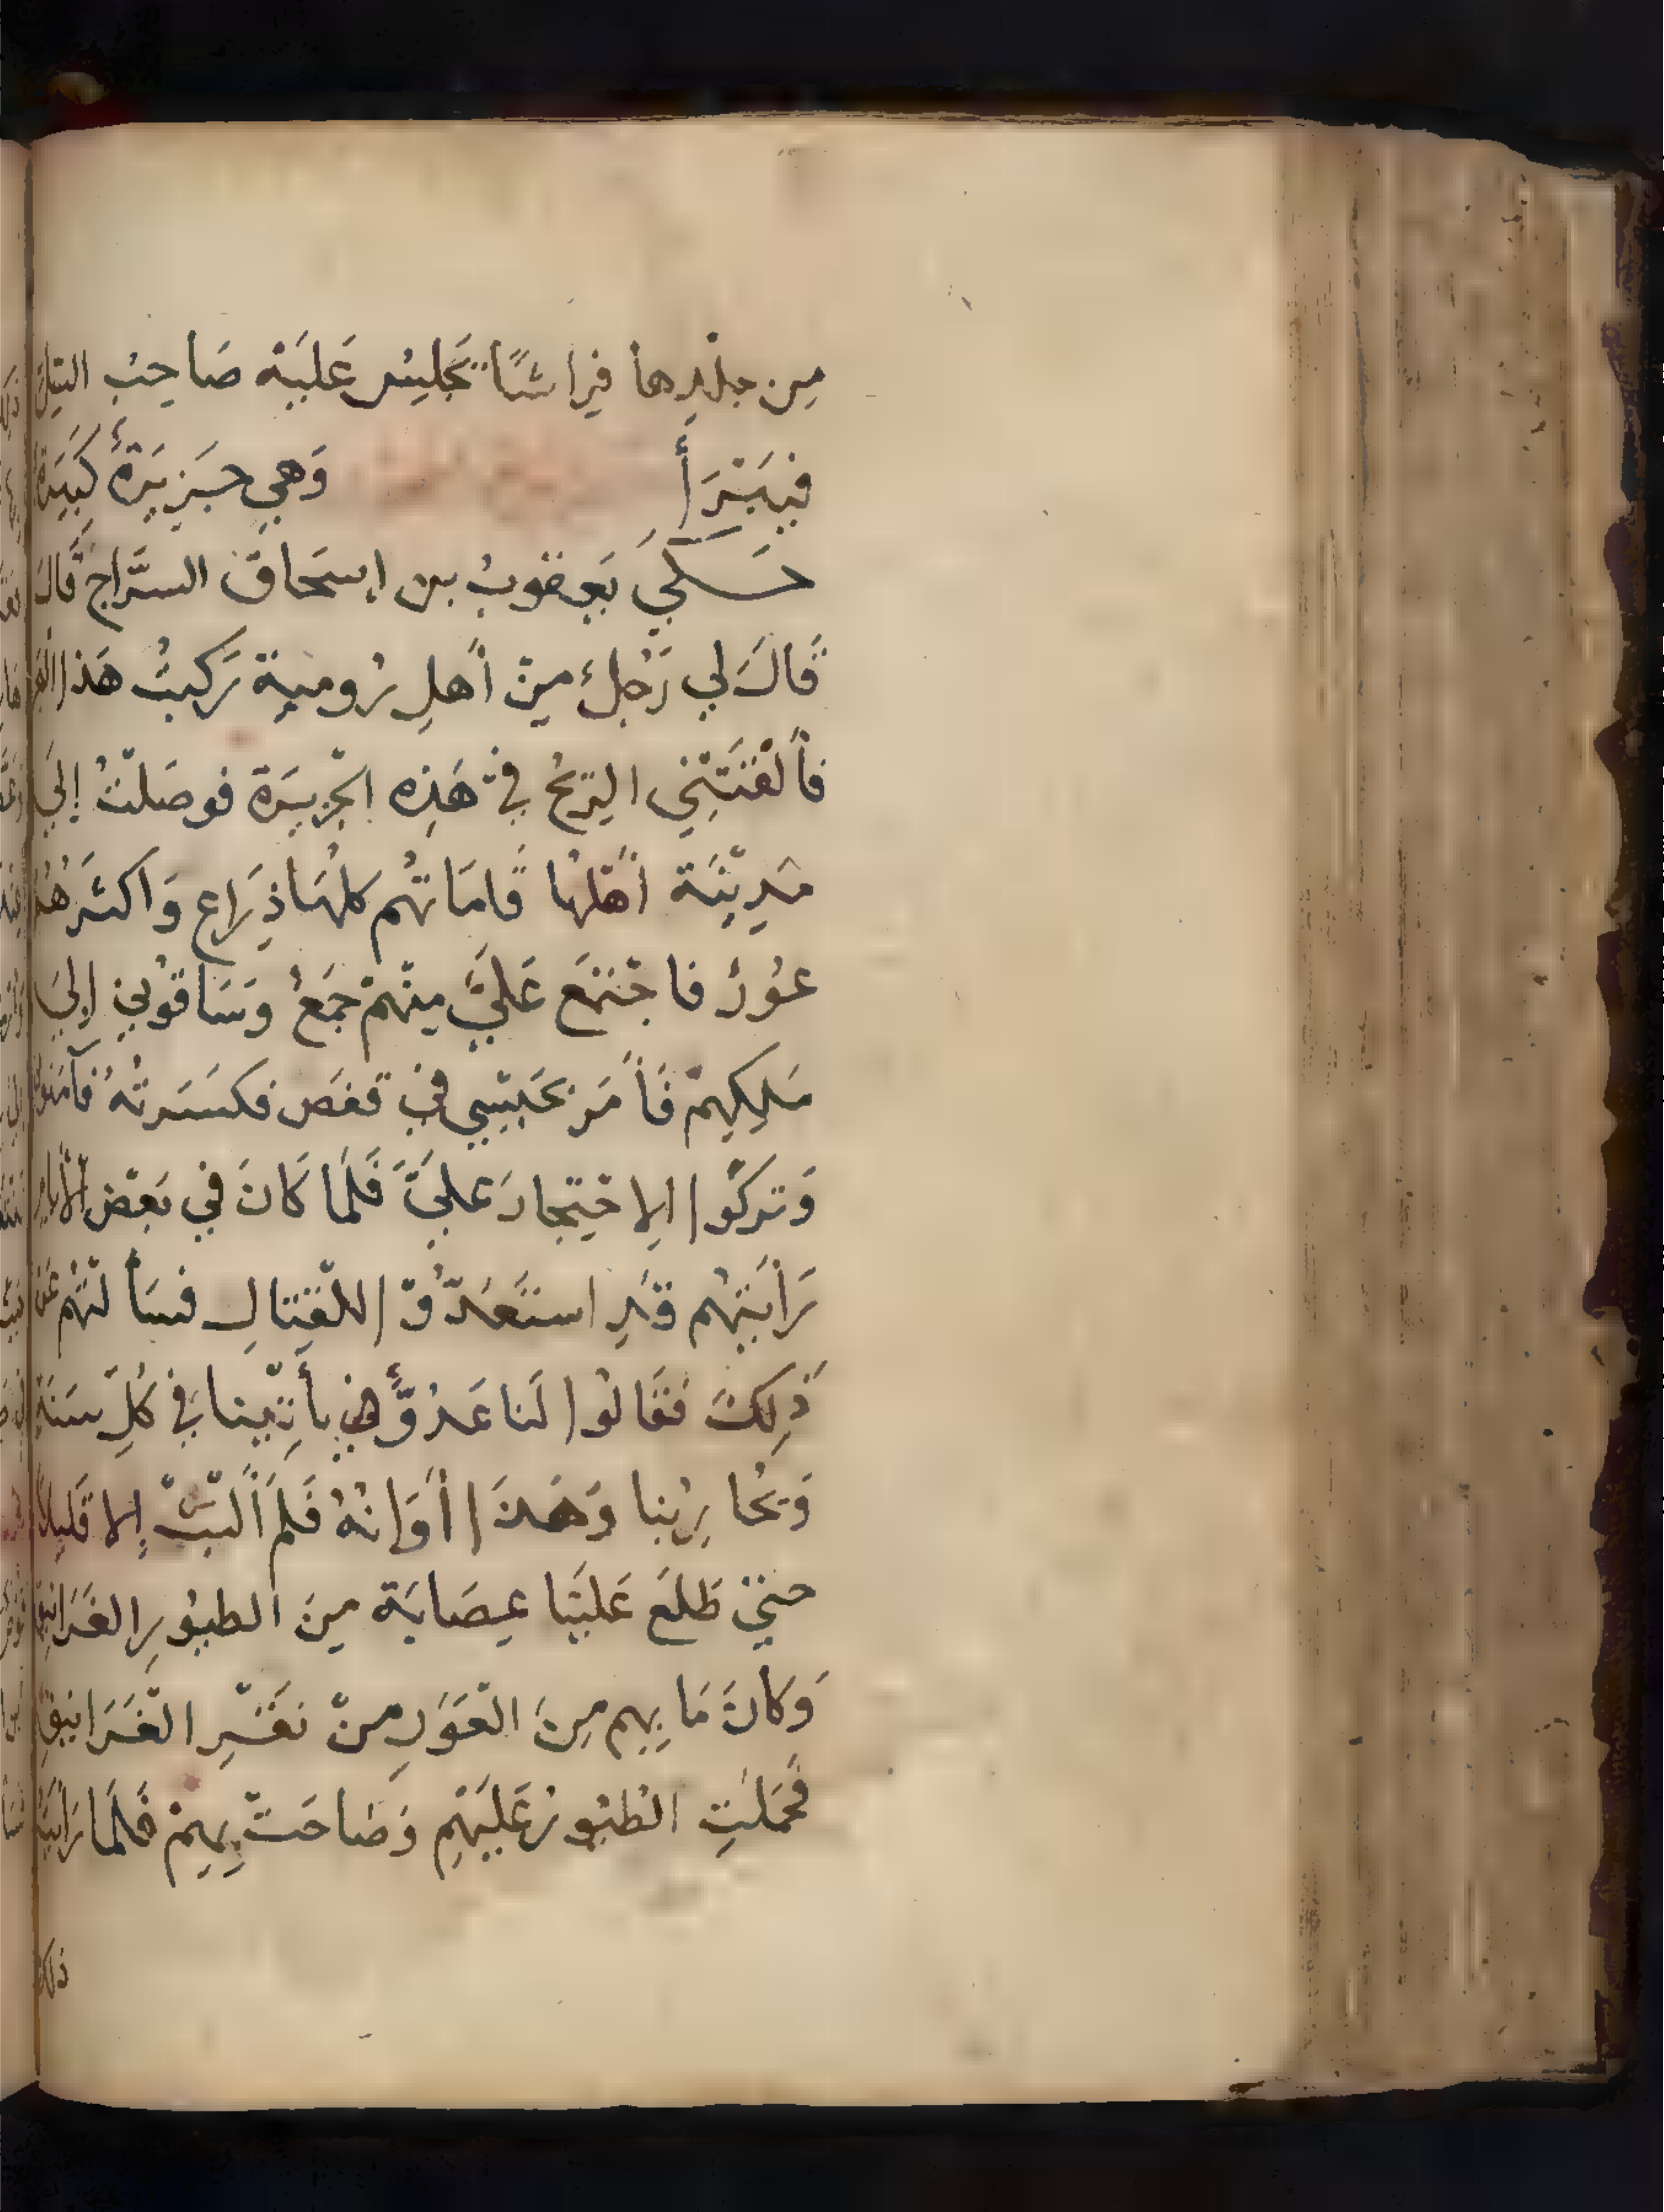 مِن جِلْدِها فِرَاشًا يَجْلِسُ عَلَيْهِ صَاحِبُ السِّلِّ
فَيَبْرَأُ وَهِيَ جَزِيرَةٌ كَبِيرَةٌ
حَكَى يَعقوبُ بن إسحَاقَ السَّرَّاج قَالَ
قَالَ لي رَجُلٌ مِنْ أَهلِ رُومية رَكِبتُ هَذا البَحر
فأَلْقَتْنِي الرِّيحُ فِي هَذِه الجَزِيرَة فوصَلْتُ إِلَى
مَدِيْنَة أَهْلُهَا قَامَاتُهُم كلُهَا ذِرَاع وَاكثَرهُمْ
عُوْرٌ فاجْتَمَعَ عَلَيَّ مِنْهُمْ جَمْعٌ وَسَاقوْنِي إِلَى
مَلِكِهِمْ فَأَمَرَ بحَبْسِي فِي قَفَص فكسَرتُهُ فآمَنُونِي
وَتركُوا الإِحْتِجارَ عَلَيَّ فَلَمَا كَانَ فِي بَعْض الأَيام
رَأَيْتُهُم قَدِ اسْتَعَدُّوْا لِلْقِتَالِ فسَأَلْتُهُم عَن
ذَلِكَ فَقَالُوا لَنا عَدُوٌّ يَأْتِيْنا فِي كُلِّ سَنَةٍ
وَيُحَارِبُنا وَهَذَا أَوَانُهُ فَلَم أَلْبَثْ إِلا قَلِيلًا
حتى طَلَعَ عَلَيْنَا عِصَابَة مِنَ الطيُورِ الغَرَانِيقِ
وَكانَ مَا بِهِم مِنَ العَوَرِ مِنْ نَقْرِ الغَرَانِيقِ
فَحَمَلَتِ الطيُورُ عَلَيْهِم وَصَاحَتْ بِهِمْ فَلَمَا رَأَيْتُ
ذلك